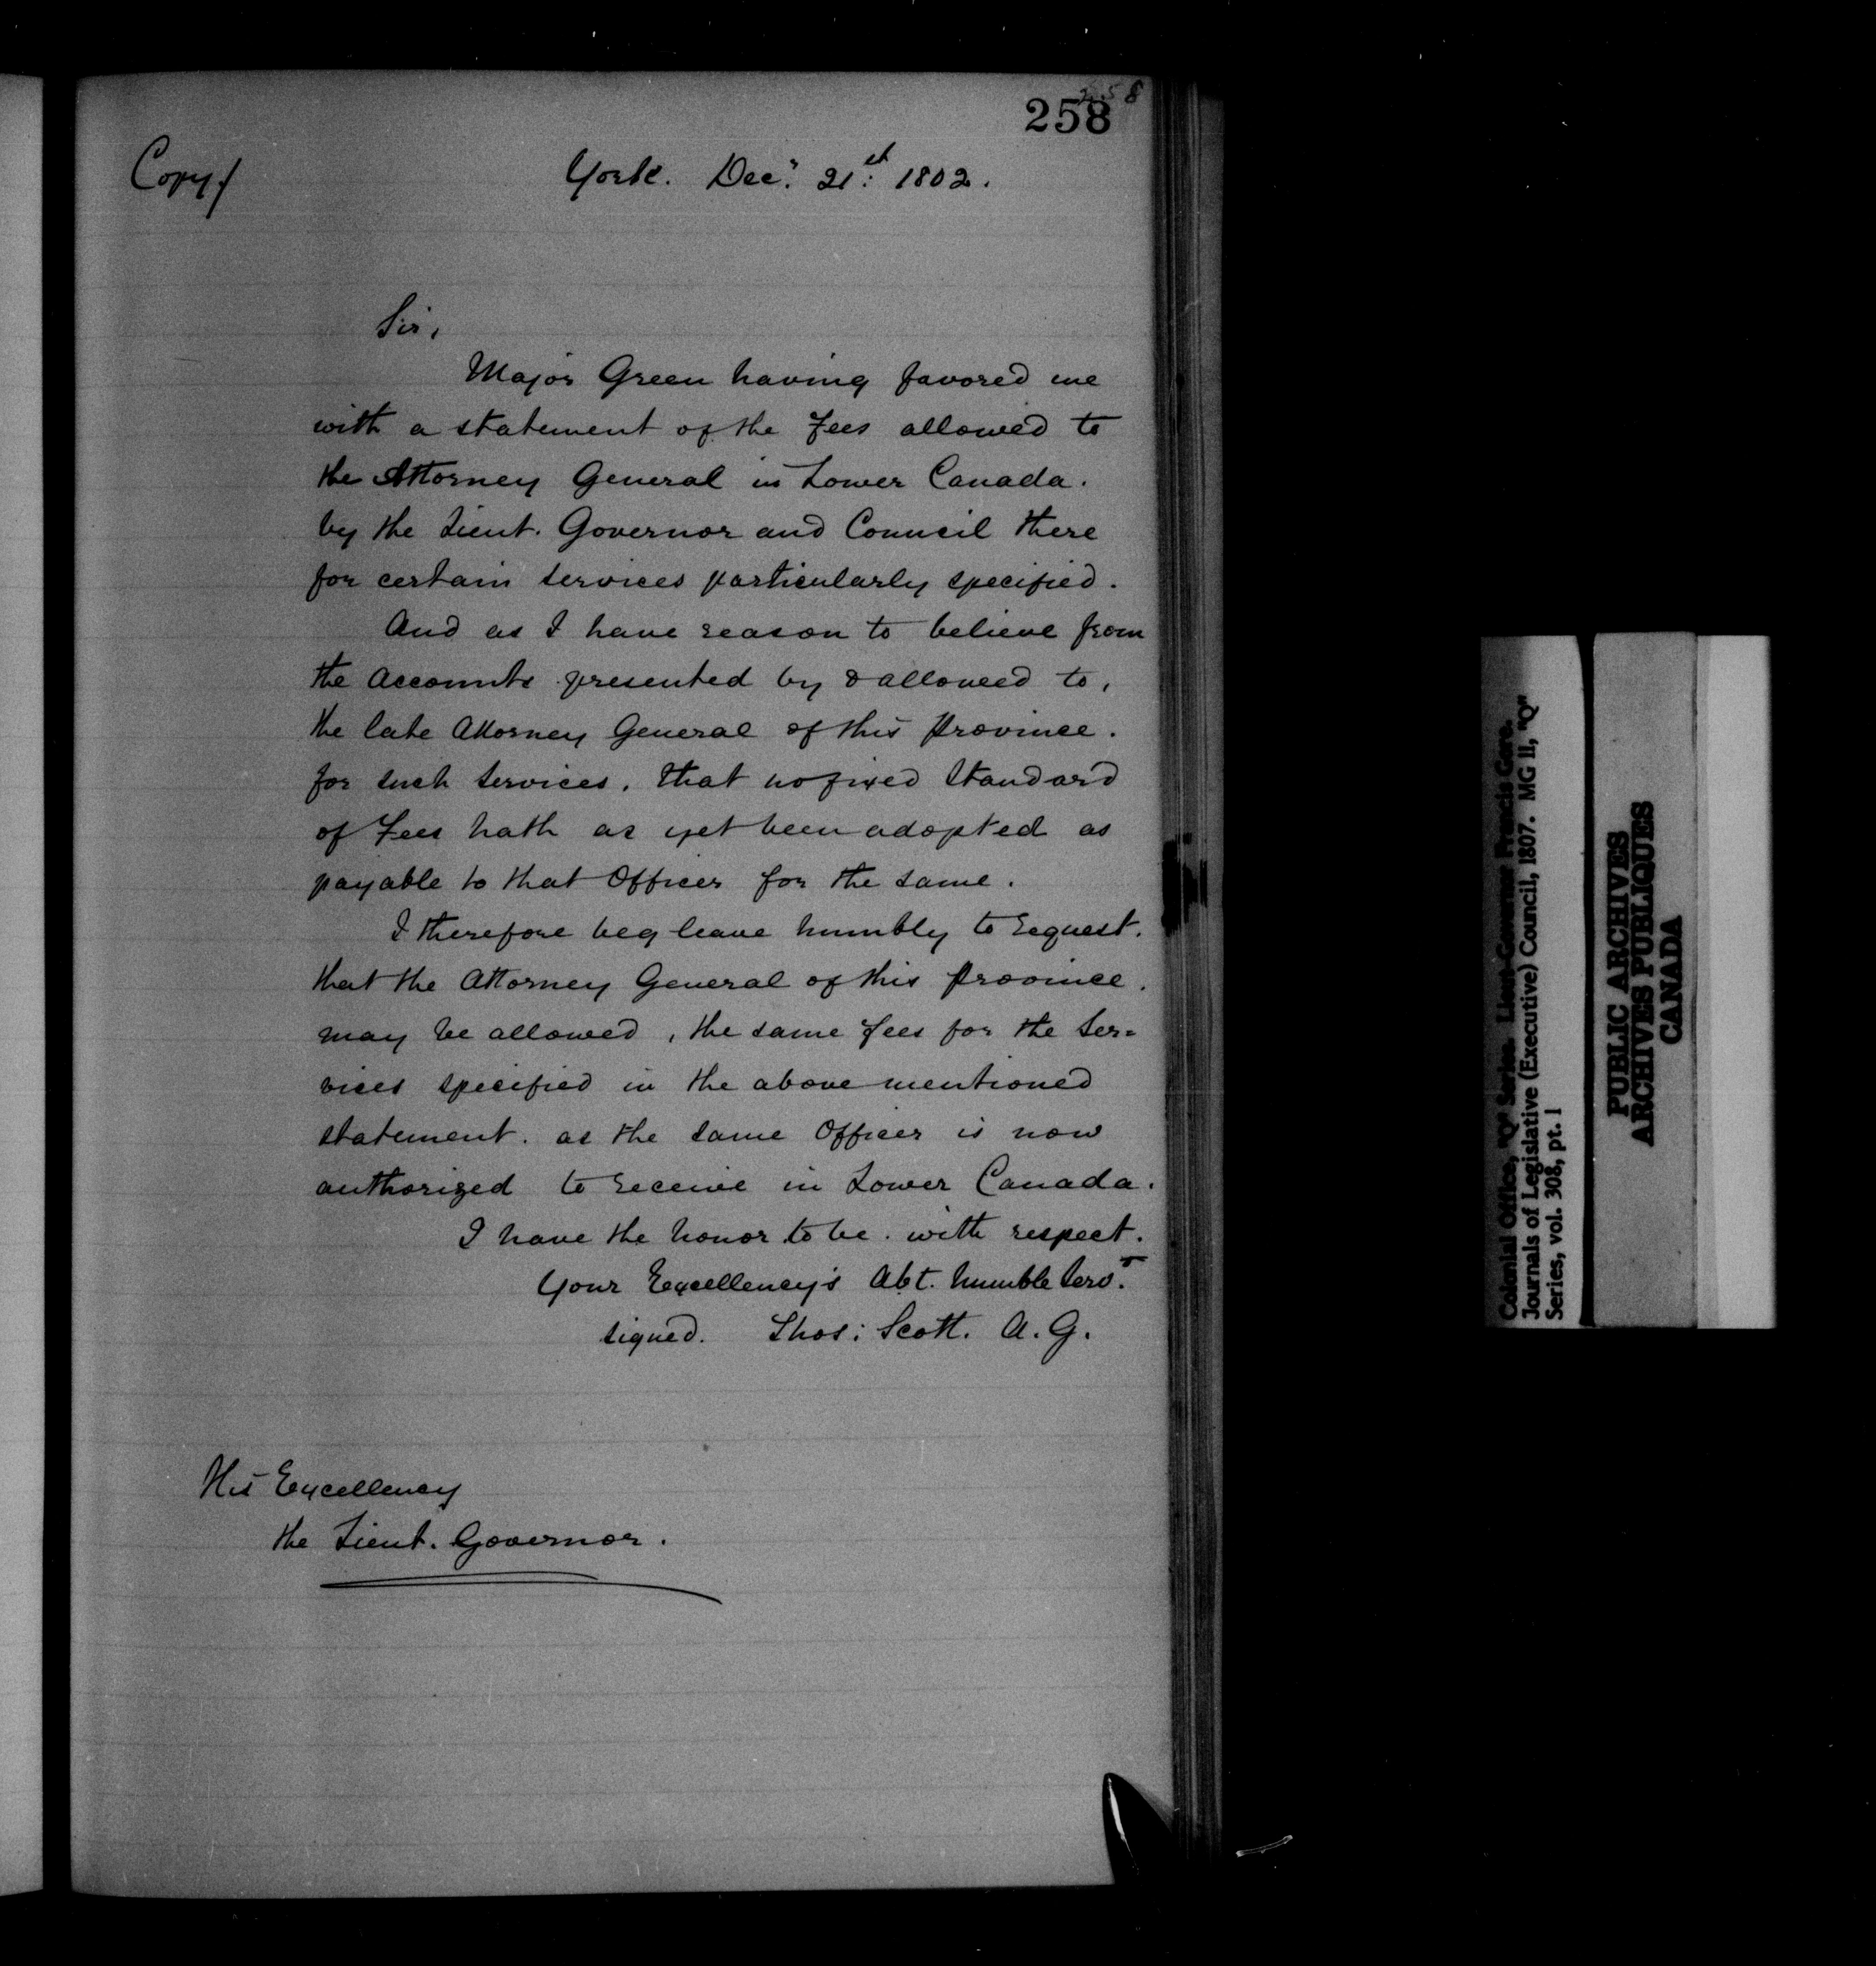 258
258
Copy/
York. Decr. 21st: 1802.
Sir,
Major Green having favored me
with a statement of the Fees allowed to
the Attorney General in Lower Canada.
by the Lieut. Governor and Council there
for certain services particularly specified.
And as I have reason to believe from
the Accounts presented by & allowed to,
the late Attorney General of this province.
for such services, that no fixed standard
of Fees hath as yet been adopted as
payable to that Officer for the same.
I therefore beg leave humbly to request.
that the Attorney General of this province.
may be allowed, the same fees for the ser=
vices specified in the above mentioned
statement. as the same Officer is now
authorized to receive in Lower Canada.
I have the honor to be. with respect.
Your Excellency's Obt. humble Servt.
signed. Thos: Scott. A. G.
His Excellency
the Lieut. Governor.
Colonial Office, "Q" Series. Lieut-Governor Francis Gore.
Journals of Legislative (Executive) Council, 1807. MG 11, "Q"
Series, vol. 308, pt. 1
PUBLIC ARCHIVES
ARCHIVES PUBLIQUES
CANADA